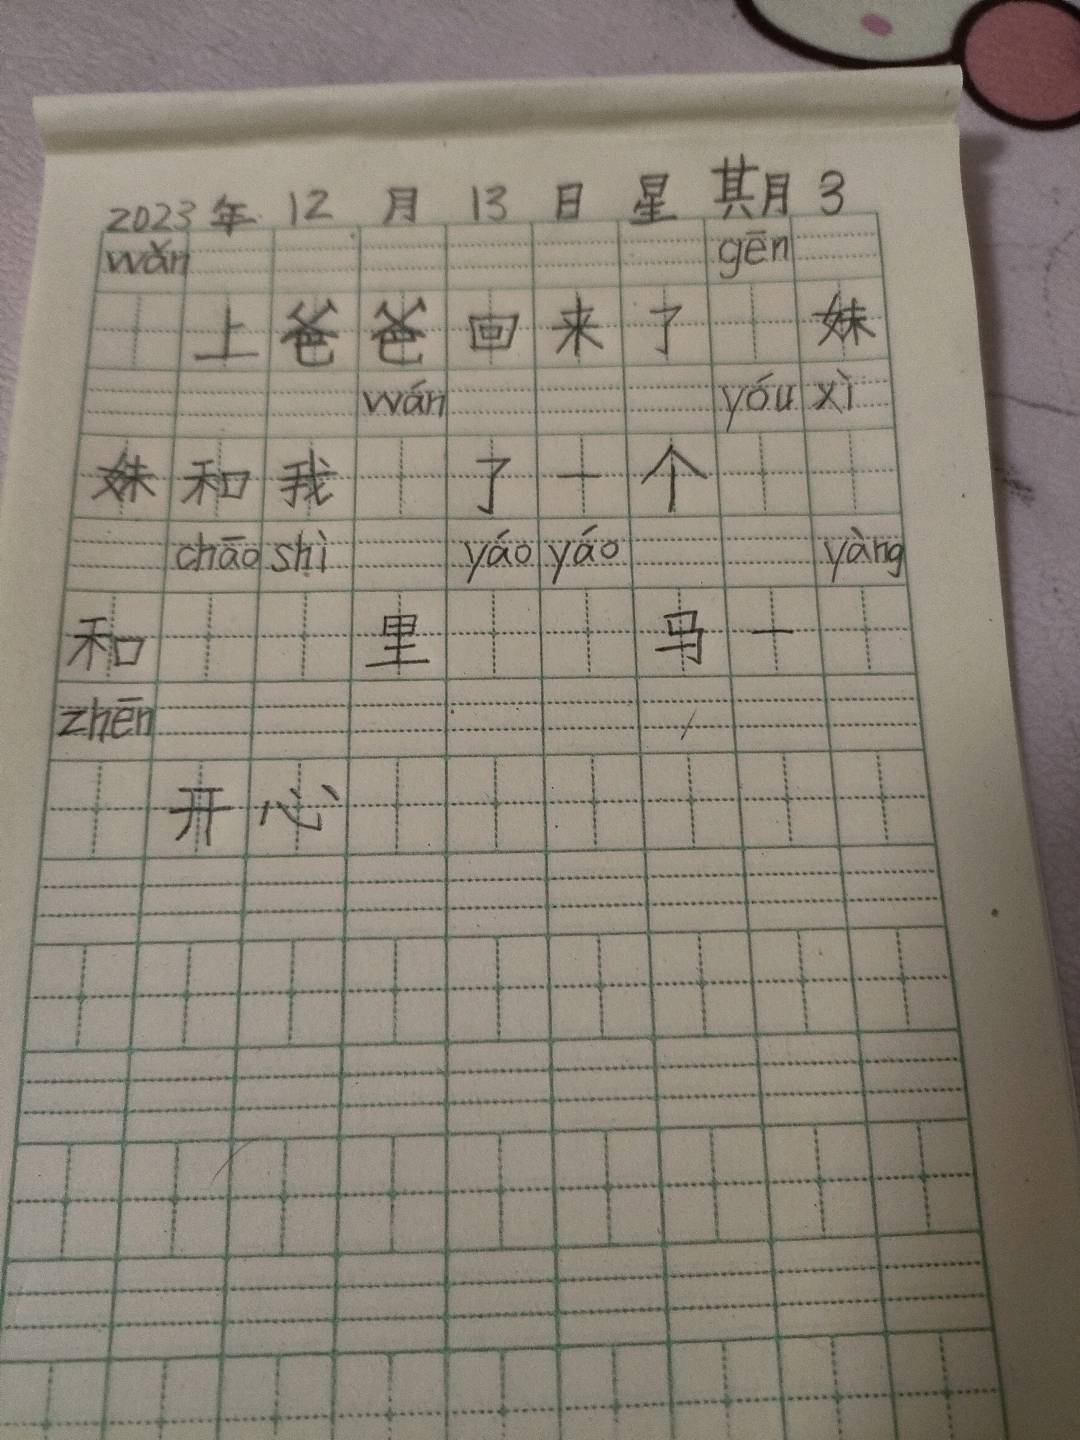 2023年 12 月 13 日 星 其月 3
wǎn gēn
上爸爸回来了 妹
wán yóu xì
妹和我 了一个
chāo shì yáo yáo yàng
和 里 马一
zhēn
开心